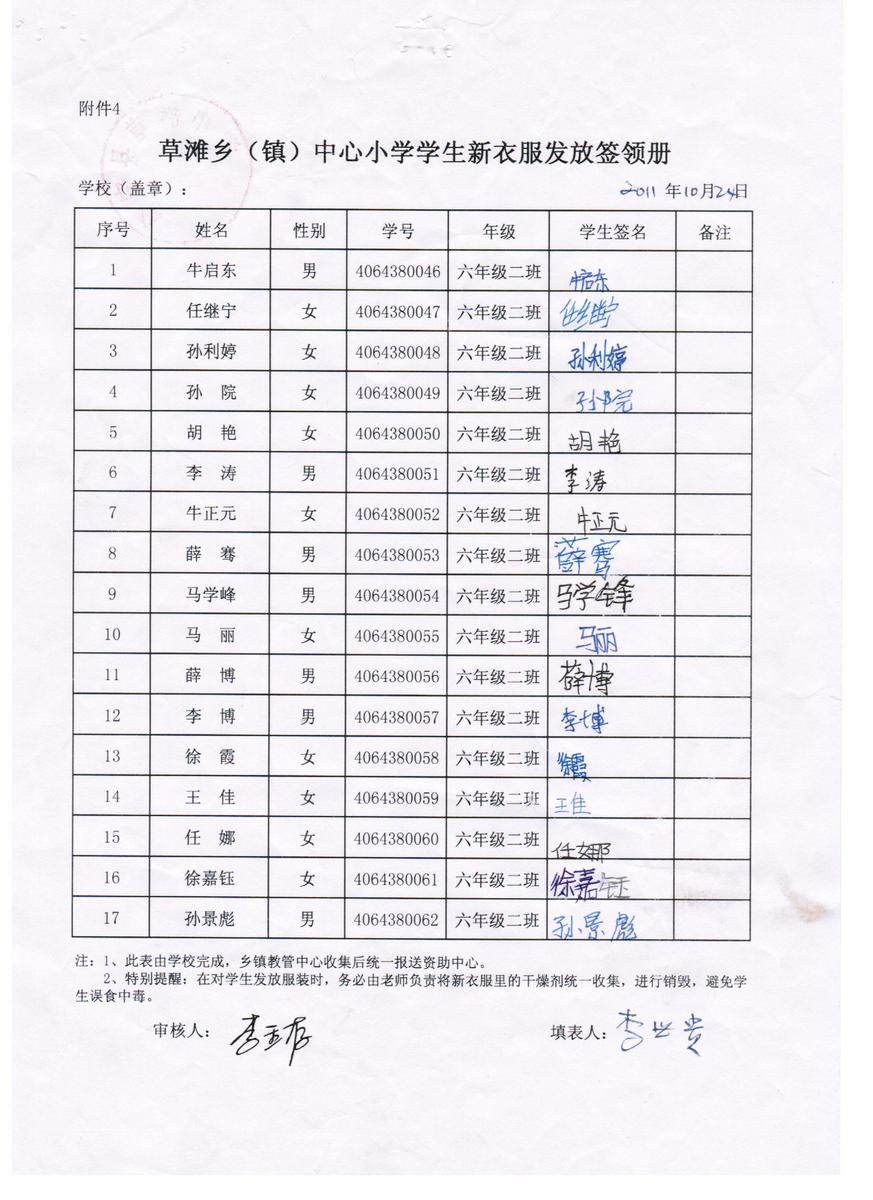 附件4
草滩乡（镇）中心小学学生新衣服发放签领册
学校（盖章）： 2011 年10月24日
序号 姓名 性别 学号 年级 学生签名 备注
1 牛启东 男 4064380046 六年级二班 牛启东
2 任继宁 女 4064380047 六年级二班 任继宁
3 孙利婷 女 4064380048 六年级二班 孙利婷
4 孙 院 女 4064380049 六年级二班 孙院
5 胡 艳 女 4064380050 六年级二班 胡艳
6 李 涛 男 4064380051 六年级二班 李涛
7 牛正元 女 4064380052 六年级二班 牛正元
8 薛 骞 男 4064380053 六年级二班 薛骞
9 马学峰 男 4064380054 六年级二班 马学锋
10 马 丽 女 4064380055 六年级二班 马丽
11 薛 博 男 4064380056 六年级二班 薛博
12 李 博 男 4064380057 六年级二班 李博
13 徐 霞 女 4064380058 六年级二班 徐霞
14 王 佳 女 4064380059 六年级二班 王佳
15 任 娜 女 4064380060 六年级二班 任娜
16 徐嘉钰 女 4064380061 六年级二班 徐嘉钰
17 孙景彪 男 4064380062 六年级二班 孙景彪
注：1、此表由学校完成，乡镇教管中心收集后统一报送资助中心。
2、特别提醒：在对学生发放服装时，务必由老师负责将新衣服里的干燥剂统一收集，进行销毁，避免学
生误食中毒。
审核人： 填表人：